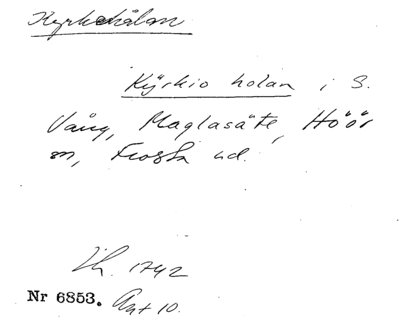 Kyrkehålan
Kÿrkio holan i S.
Vång, Maglasäte, Höör
sn, Frosta hd.
Lh. 1742
Nr 6853. Akt 10.